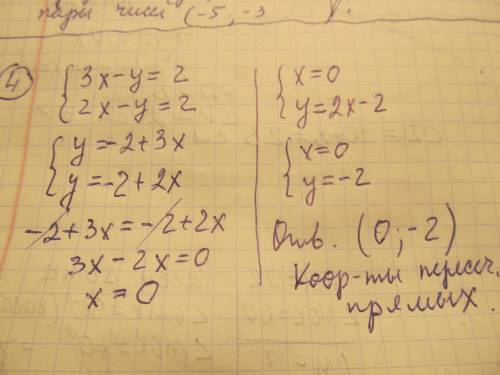 пары чисел (-5; -3
4
{3x-y=2
{2x-y=2
{y=-2+3x
{y=-2+2x
-2+3x=-2+2x
3x-2x=0
x=0
{x=0
{y=2x-2
{x=0
{y=-2
Отв. (0;-2)
Коор-ты пересеч.
прямых.